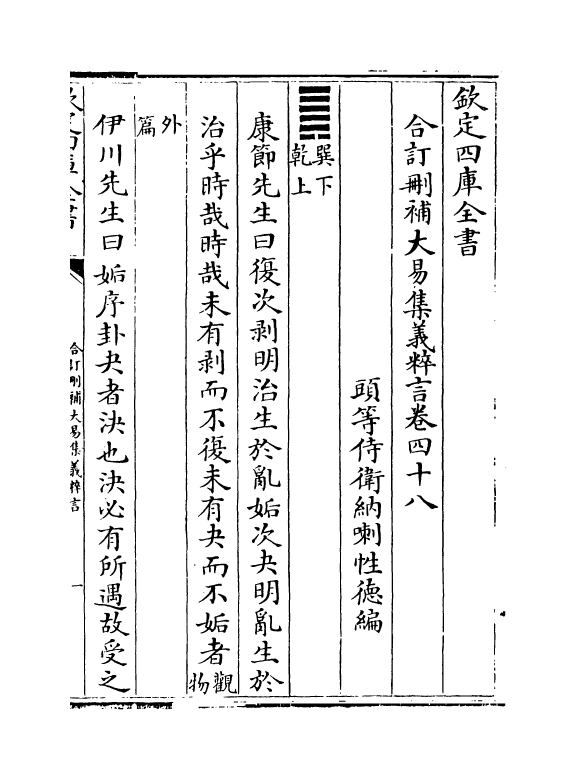 欽定四庫全書
合訂刪補大易集義粹言卷四十八
頭等侍衛納喇性德編
䷫巽下乾上
康節先生曰復次剥明治生於亂姤次夬明亂生於
治乎時哉時哉未有剥而不復未有夬而不姤者觀物
外篇
伊川先生曰姤序卦夬者決也決必有所遇故受之
合訂刪補大易集義粹言
一